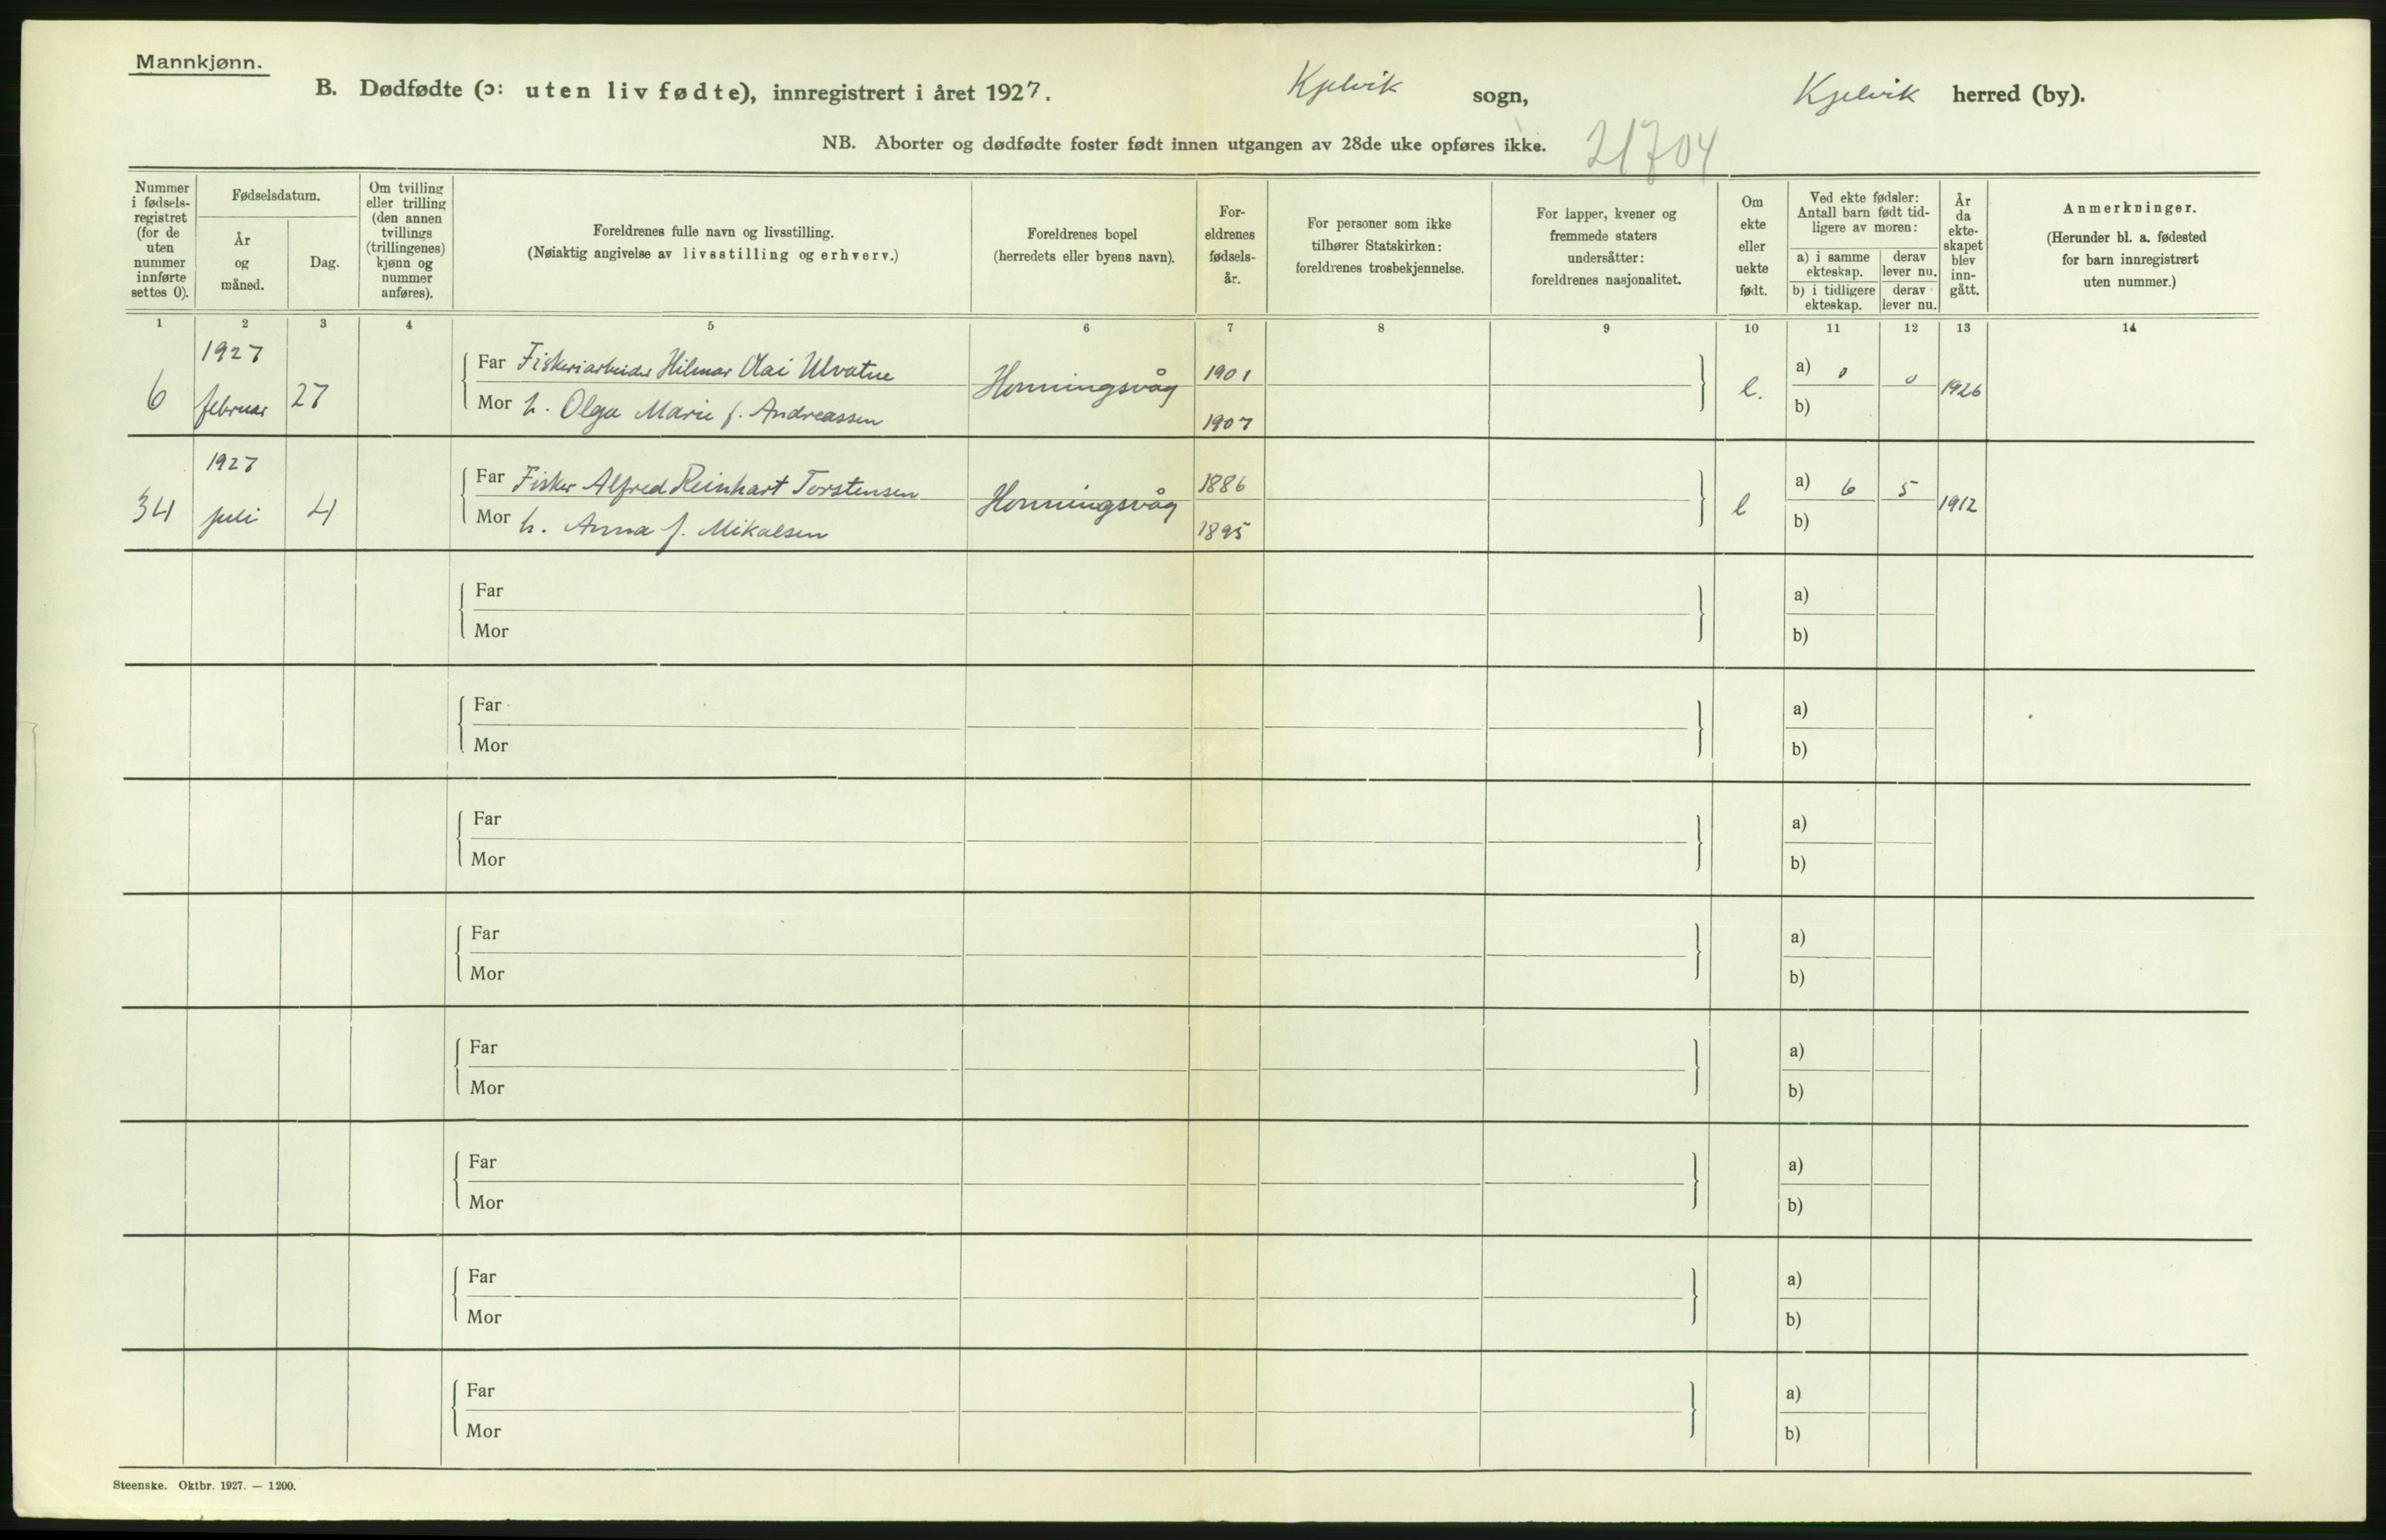 Mannkjønn.
B. Dødfødte (ɔ: uten liv fødte), innregistrert i året 1927. Kjelvik sogn, Kjelvik herred (by).
NB. Aborter og dødfødte foster født innen utgangen av 28de uke opføres ikke. 21704
Nummer i fødsels- registret (for de uten nummer innførte settes 0).
Fødselsdatum.
År og måned.
Dag.
Om tvilling eller trilling (den annen tvillings (trillingenes) kjønn og nummer anføres).
Foreldrenes fulle navn og livsstilling.
(Nøiaktig angivelse av livsstilling og erhverv.)
Foreldrenes bopel
(herredets eller byens navn).
For- eldrenes fødsels- år.
For personer som ikke tilhører Statskirken: foreldrenes trosbekjennelse.
For lapper, kvener og fremmede staters undersåtter: foreldrenes nasjonalitet.
Om ekte eller uekte født.
Ved ekte fødsler: Antall barn født tid- ligere av moren:
a) i samme ekteskap.
derav lever nu.
b) i tidligere ekteskap.
derav lever nu.
År da ekte- skapet blev inn- gått.
Anmerkninger.
(Herunder bl. a. fødested for barn innregistrert uten nummer.)
1 2 3 4 5 6 7 8 9 10 11 12 13 14
1927
6 februar 27
Far Fiskeriarbeider Hilmar Olai Ulvatne
Mor h. Olga Marie f. Andreassen
Honningsvåg
1901
1907
e.
a) 0 0
b)
1926
1927
34 juli 4
Far Fisker Alfred Reinhart Torstensen
Mor h. Anna f. Mikalsen
Honningsvåg
1886
1895
e
a) 6 5
b)
1912
Far a)
Mor b)
Far a)
Mor b)
Far a)
Mor b)
Far a)
Mor b)
Far a)
Mor b)
Far a)
Mor b)
Far a)
Mor b)
Far a)
Mor b)
Steenske. Oktbr. 1927. — 1200.